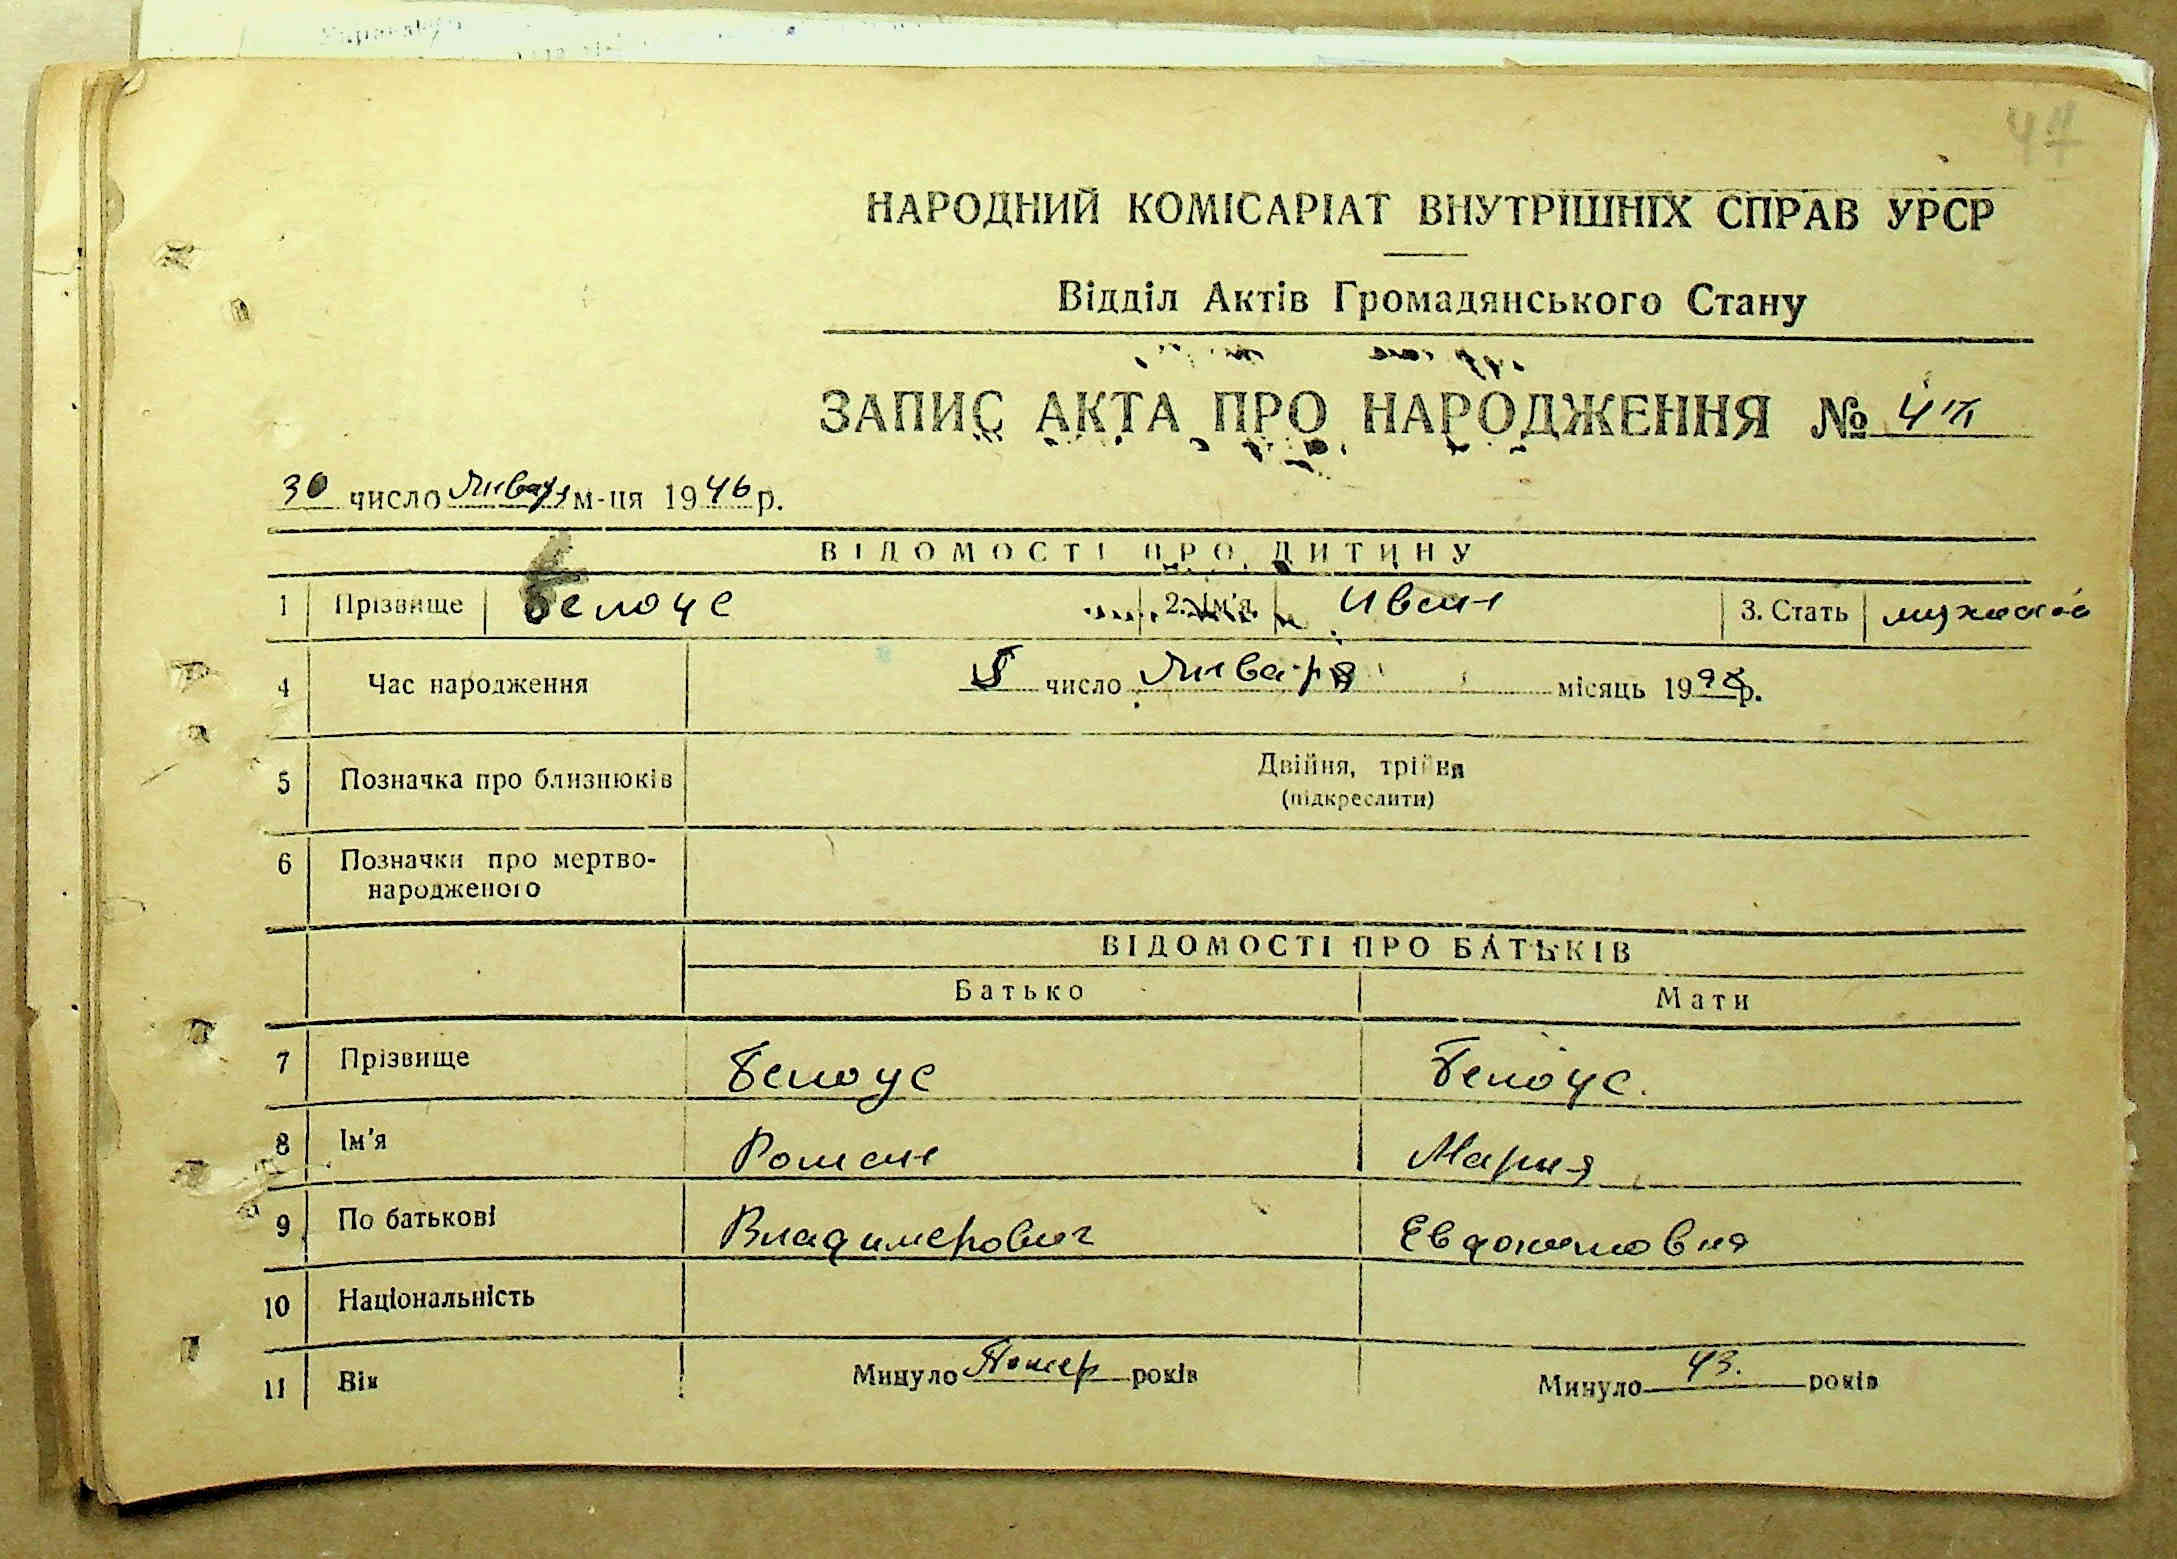 НАРОДНИЙ КОМІСАРІАТ ВНУТРІШНІХ СПРАВ УРСР
Відділ Актів Громадянського Стану
ЗАПИС АКТА ПРО НАРОДЖЕННЯ №
30 число Января м-ця 1946 р.
ВІДОМОСТІ ПРО ДИТИНУ
1 Прізвище Белоус 2. Ім'я Иван 3. Стать мужской
4 Час народження число Января місяць 19 р.
5 Позначка про близнюків Двійня, трійня
(підкреслити)
6 Позначки про мертво-
народженого
ВІДОМОСТІ ПРО БАТЬКІВ
Батько Мати
7 Прізвище Белоус Белоус.
8 Ім'я Роман Мария
9 По батькові Владимерович Евдокимовна
10 Національність
11 Вік Минуло Помер років Минуло 43. років